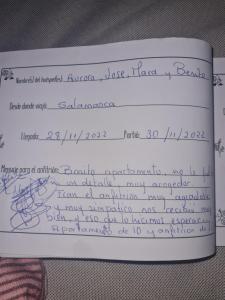 Nombre(s) del huésped(es): Aurora, Jose, Mara y Benito
Desde donde viaja: Salamanca
Llegada: 28/11/2022 Partió: 30/11/2022
Mensaje para el anfitrión: Bonito apartamento, no le
un detalle, muy acogedor
Ivan el anfitrión muy agradable
y muy simpático nos recibió muy
bien, y eso que lo hicimos esperar
Apartamento de 10 y anfitrión de